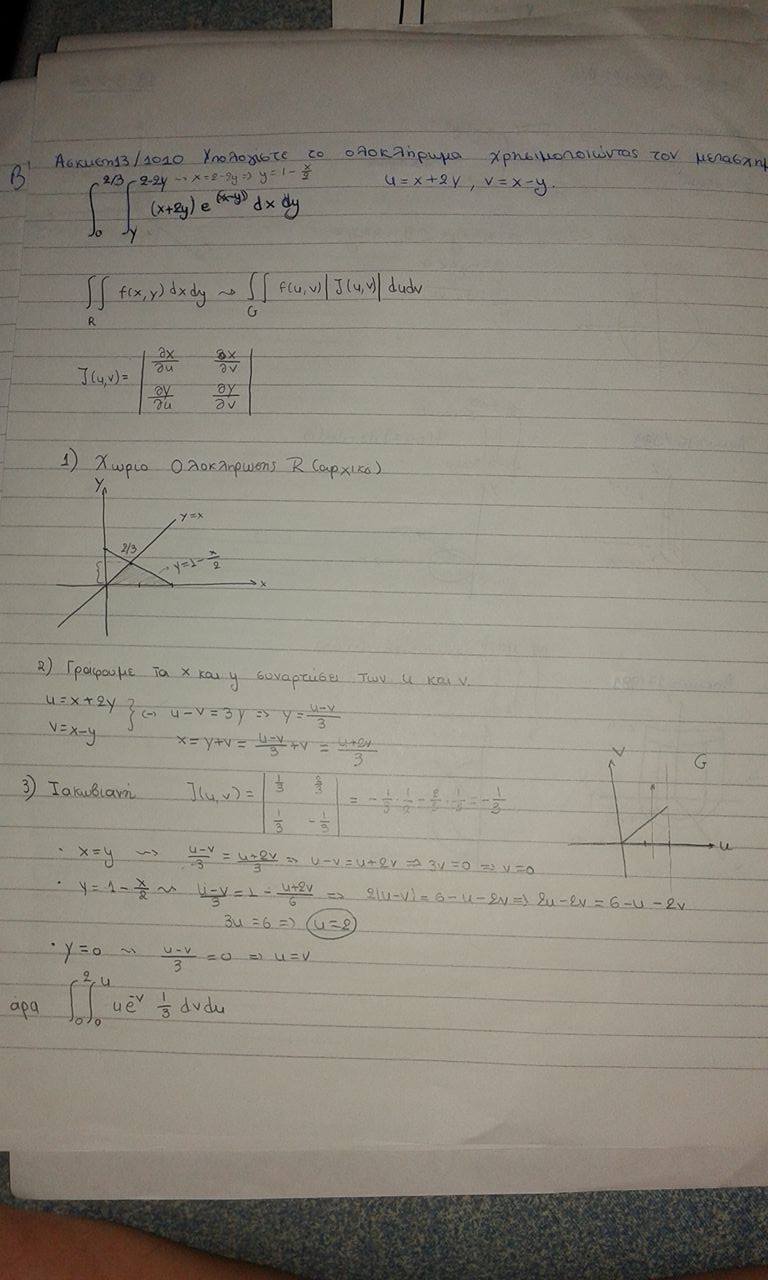 Β' Άσκηση 13/1010 Υπολογίστε το ολοκλήρωμα χρησιμοποιώντας τον μετασχημ
∫₀^{2/3} ∫_y^{2-2y} (x+2y) e dx dy → x=2-2y ⇒ y=1-x/2 u=x+2y, v=x-y.
∬_R f(x,y) dxdy ⇝ ∬_G f(u,v) |J(u,v)| dudv
J(u,v)= | ∂x/∂u ∂x/∂v |
| ∂y/∂u ∂y/∂v |
1) Χωριο Ολοκληρωσης R (αρχικο)
y
y=x
2/3
y=1-x/2
x
2) Γραφουμε τα x και y συναρτήσει των u και v.
u=x+2y
v=x-y } (→ u-v=3y ⇒ y=(u-v)/3
x=y+v=(u-v)/3+v=(u+2v)/3
v G
u
3) Ιακωβιανή J(u,v)= | 1/3 2/3 |
| 1/3 -1/3 | = = -1/3
· x=y ⇝ (u-v)/3=(u+2v)/3 ⇒ u-v=u+2v ⇒ 3v=0 ⇒ v=0
· y=1-x/2 ⇝ (u-v)/3=1-(u+2v)/6 ⇒ 2(u-v)=6-u-2v ⇒ 2u-2v=6-u-2v
3u=6 ⇒ u=2
· y=0 ⇝ (u-v)/3=0 ⇒ u=v
αρα ∫₀² ∫₀^u ue^{-v} 1/3 dvdu